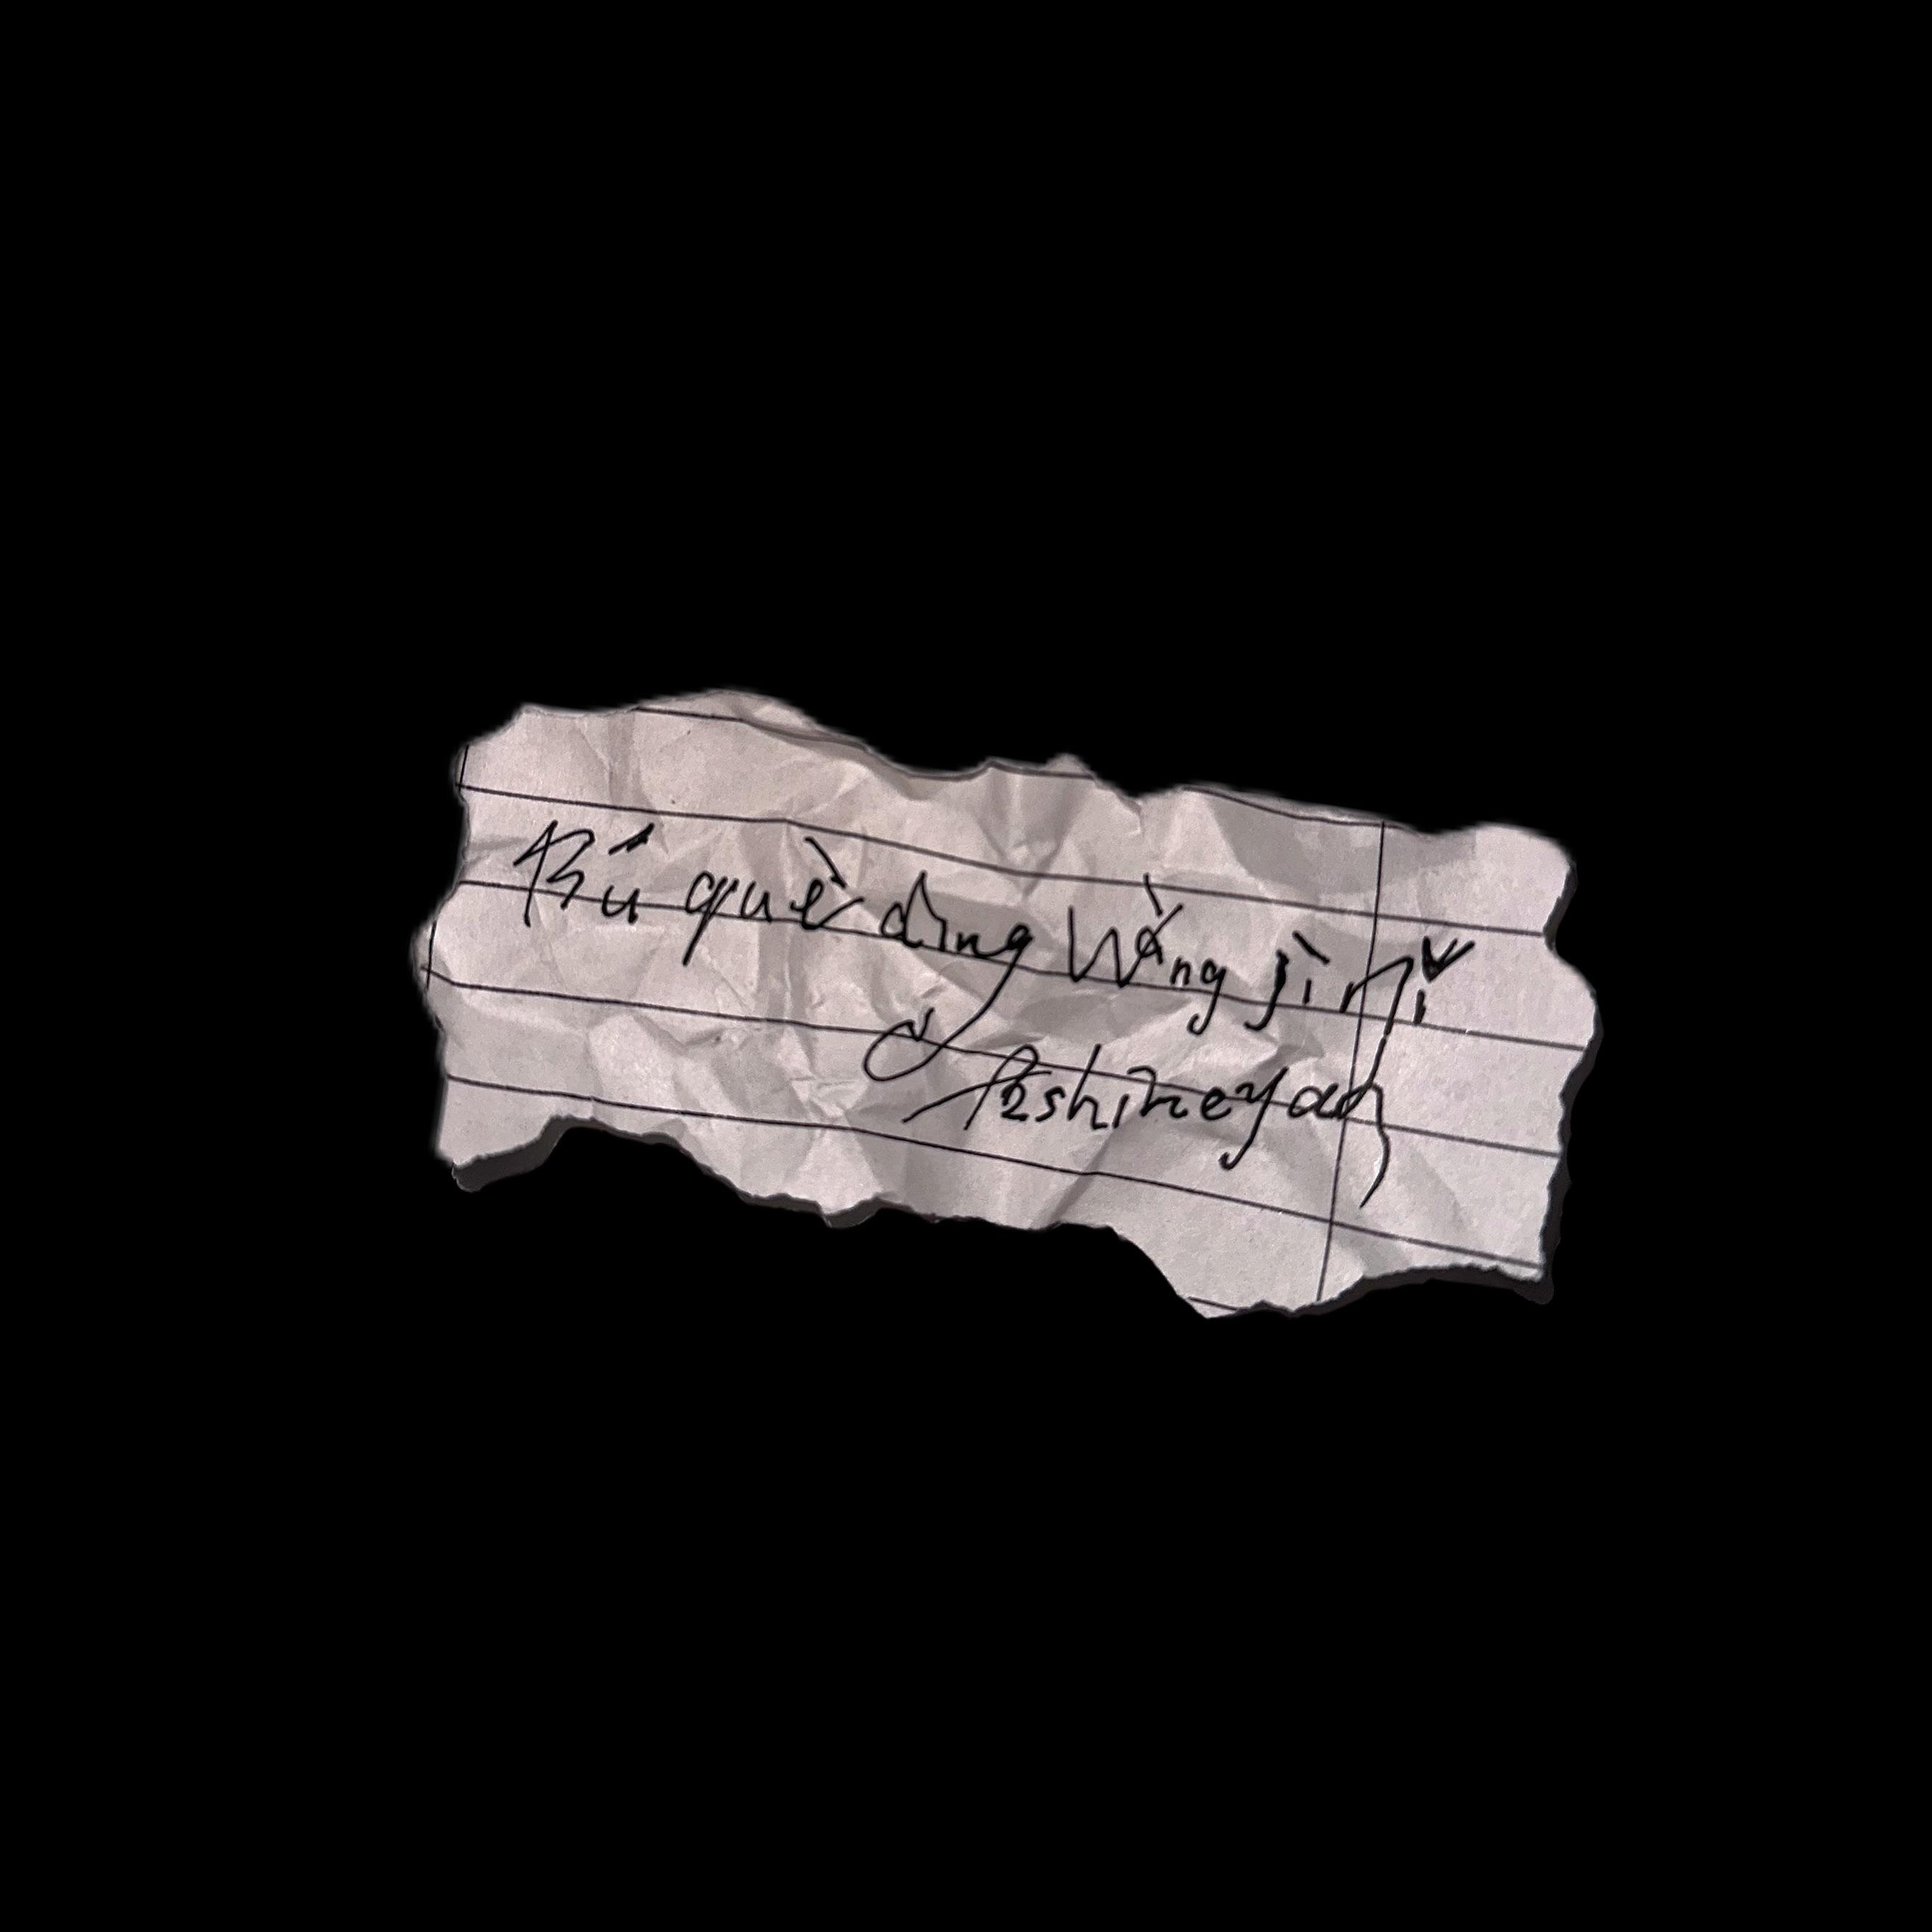 Bú què dìng Wàng jì nǐ
Bshineyan